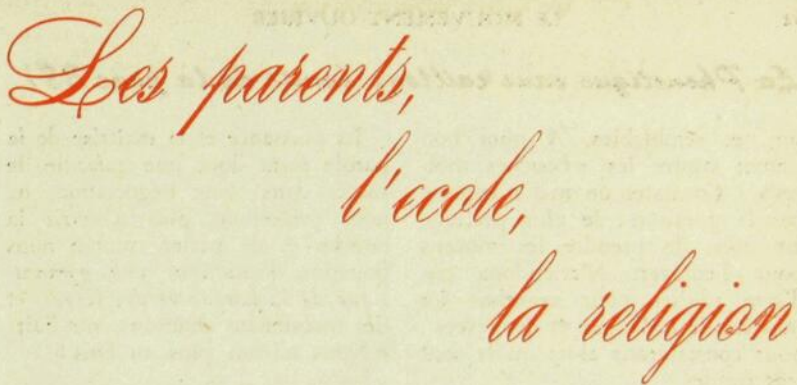 Les parents,
l'ecole,
la religion